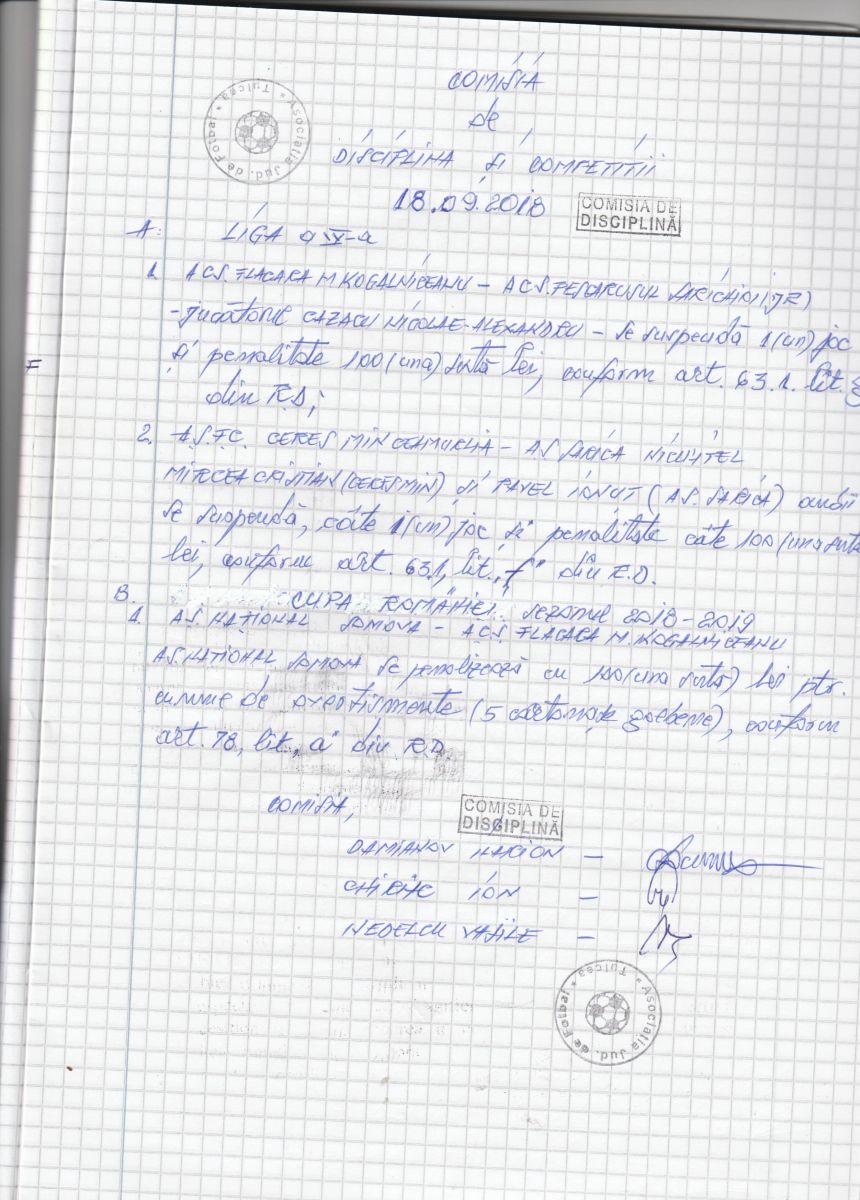 Asociația Jud. de Fotbal * Tulcea *
COMISIA
de
DISCIPLINA și COMPETITII
18.09.2018
COMISIA DE
DISCIPLINĂ
A: LIGA a IV-a
1. ACS. FLACARA M. KOGALNICEANU – ACS. PESCARUSUL SARICHIOI (JR)
- jucătorul CAZACU NICOLAE-ALEXANDRU – se suspendă 1(un) joc
și penalitate 100 (una) sută lei, conform art. 63.1. lit. g
din R.D;
F
2. A.S.F.C. CERES MIN CEAMURLIA – AS SARICA NICULITEL
MIRCEA CRISTIAN (CERES MIN) și PAVEL IONUT (AS. SARICA) ambii
se suspendă, câte 1(un) joc și penalitate câte 100 (una sută
lei, conform art. 63.1, lit. „f" din R.D.
B. CUPA ROMÂNIEI sezonul 2018-2019
1. AS. NAȚIONAL SOMOVA – ACS. FLACARA M. KOGALNICEANU
AS. NAȚIONAL SOMOVA se penalizează cu 100 (una sută) lei ptr.
cumul de avertismente (5 cartonașe galbene), conform
art. 78, lit. „a" din R.D.
COMISIA,
COMISIA DE
DISCIPLINĂ
DAMIANOV ILARION –
CHIRIAC ION –
NEDELCU VASILE –
Asociația Jud. de Fotbal * Tulcea *